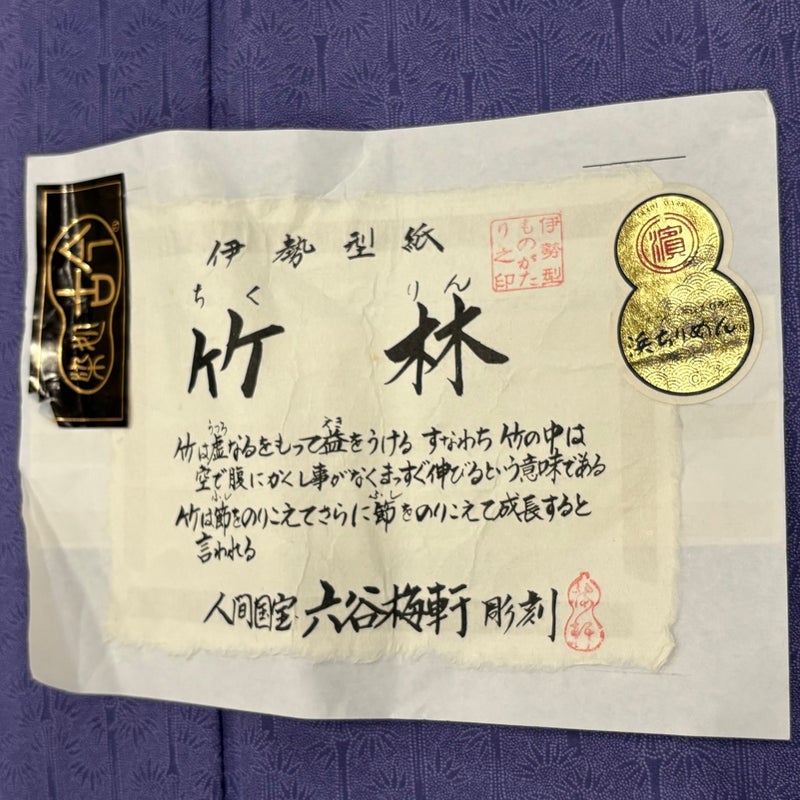 伊勢型紙
伊勢型
ものがた
り之印
ちく りん
竹林
竹は虚なるをもって益をうける すなわち 竹の中は
空で腹にかくし事がなくまっすぐ伸びるという意味である
竹は節をのりこえてさらに節をのりこえて成長すると
言われる
人間国宝 六谷梅軒 彫刻
濱
浜ちりめん